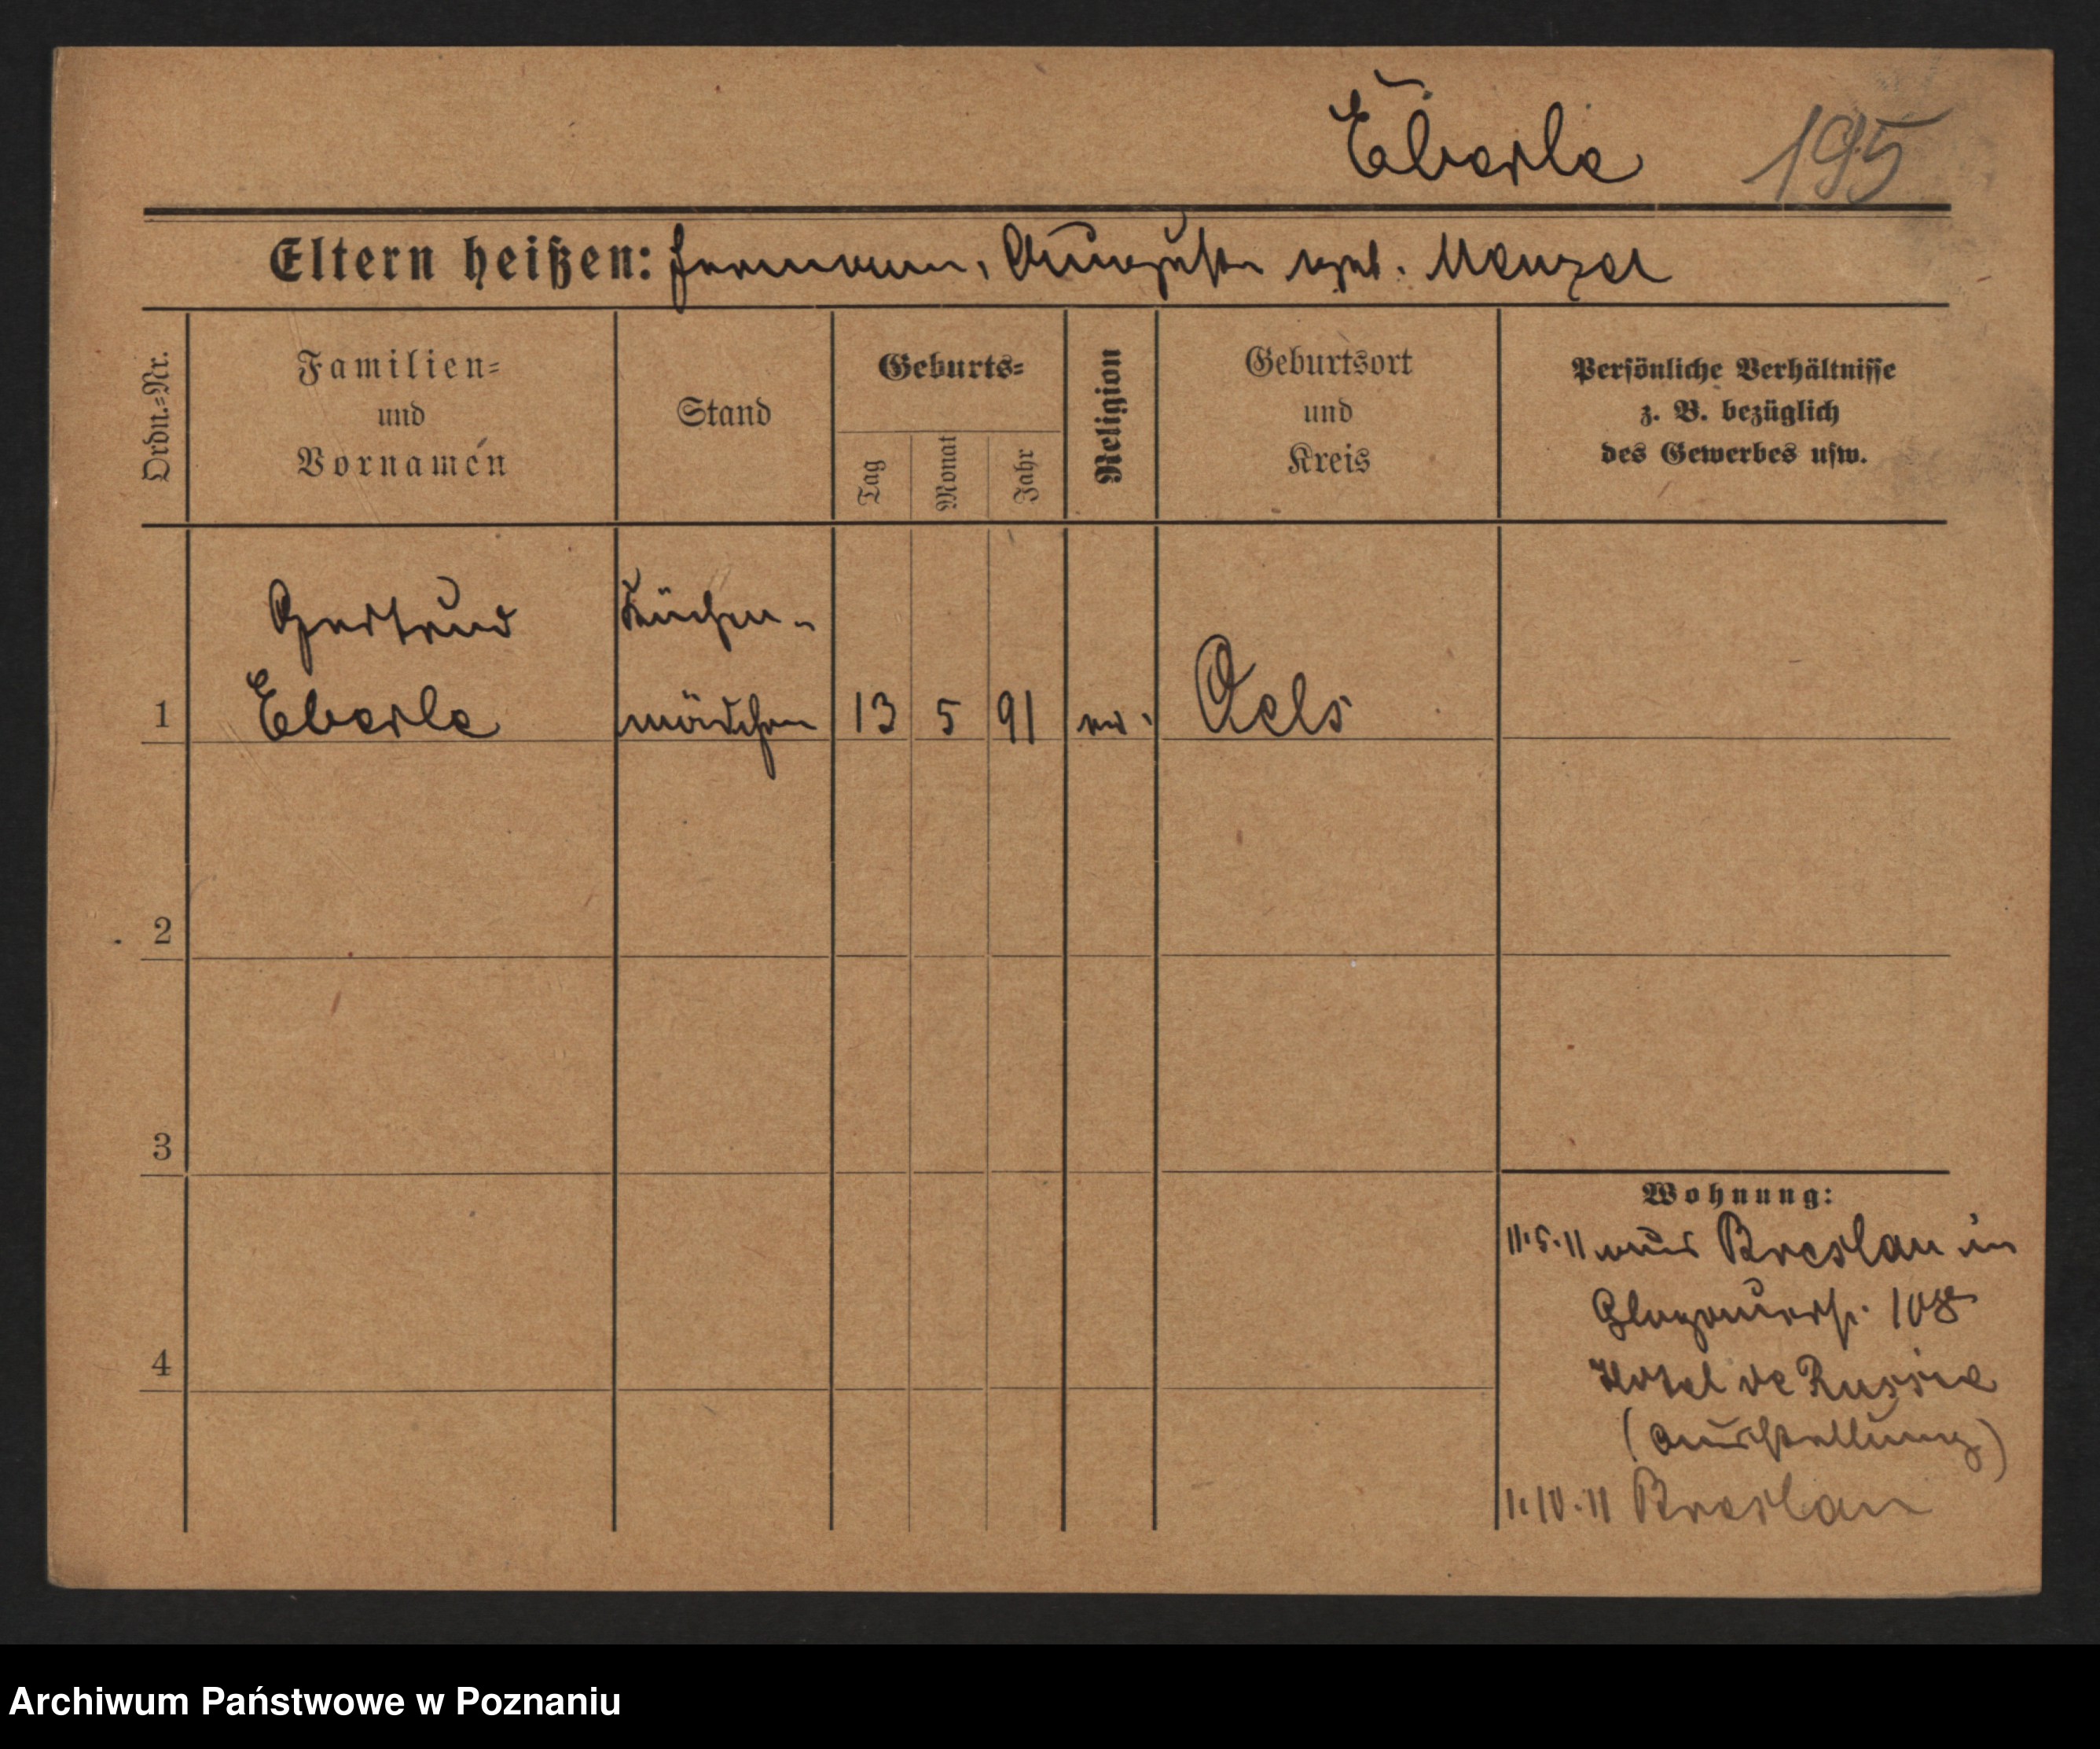 Eberle 195
Eltern heißen: Hermann, Auguste geb. Menzel
Ordn.=Nr.
Familien=
und
Vornamen
Stand
Geburts=
Tag
Monat
Jahr
Religion
Geburtsort
und
Kreis
Persönliche Verhältnisse
z. B. bezüglich
des Gewerbes usw.
Gertrud Küchen-
1 Eberle mädchen 13 5 91 ev. Oels
2
3
4
Wohnung:
11.5.11 aus Breslau in
Glogauerstr.
Hotel de Russie
(Ausstellung)
1.10.11 Breslau
Archiwum Państwowe w Poznaniu